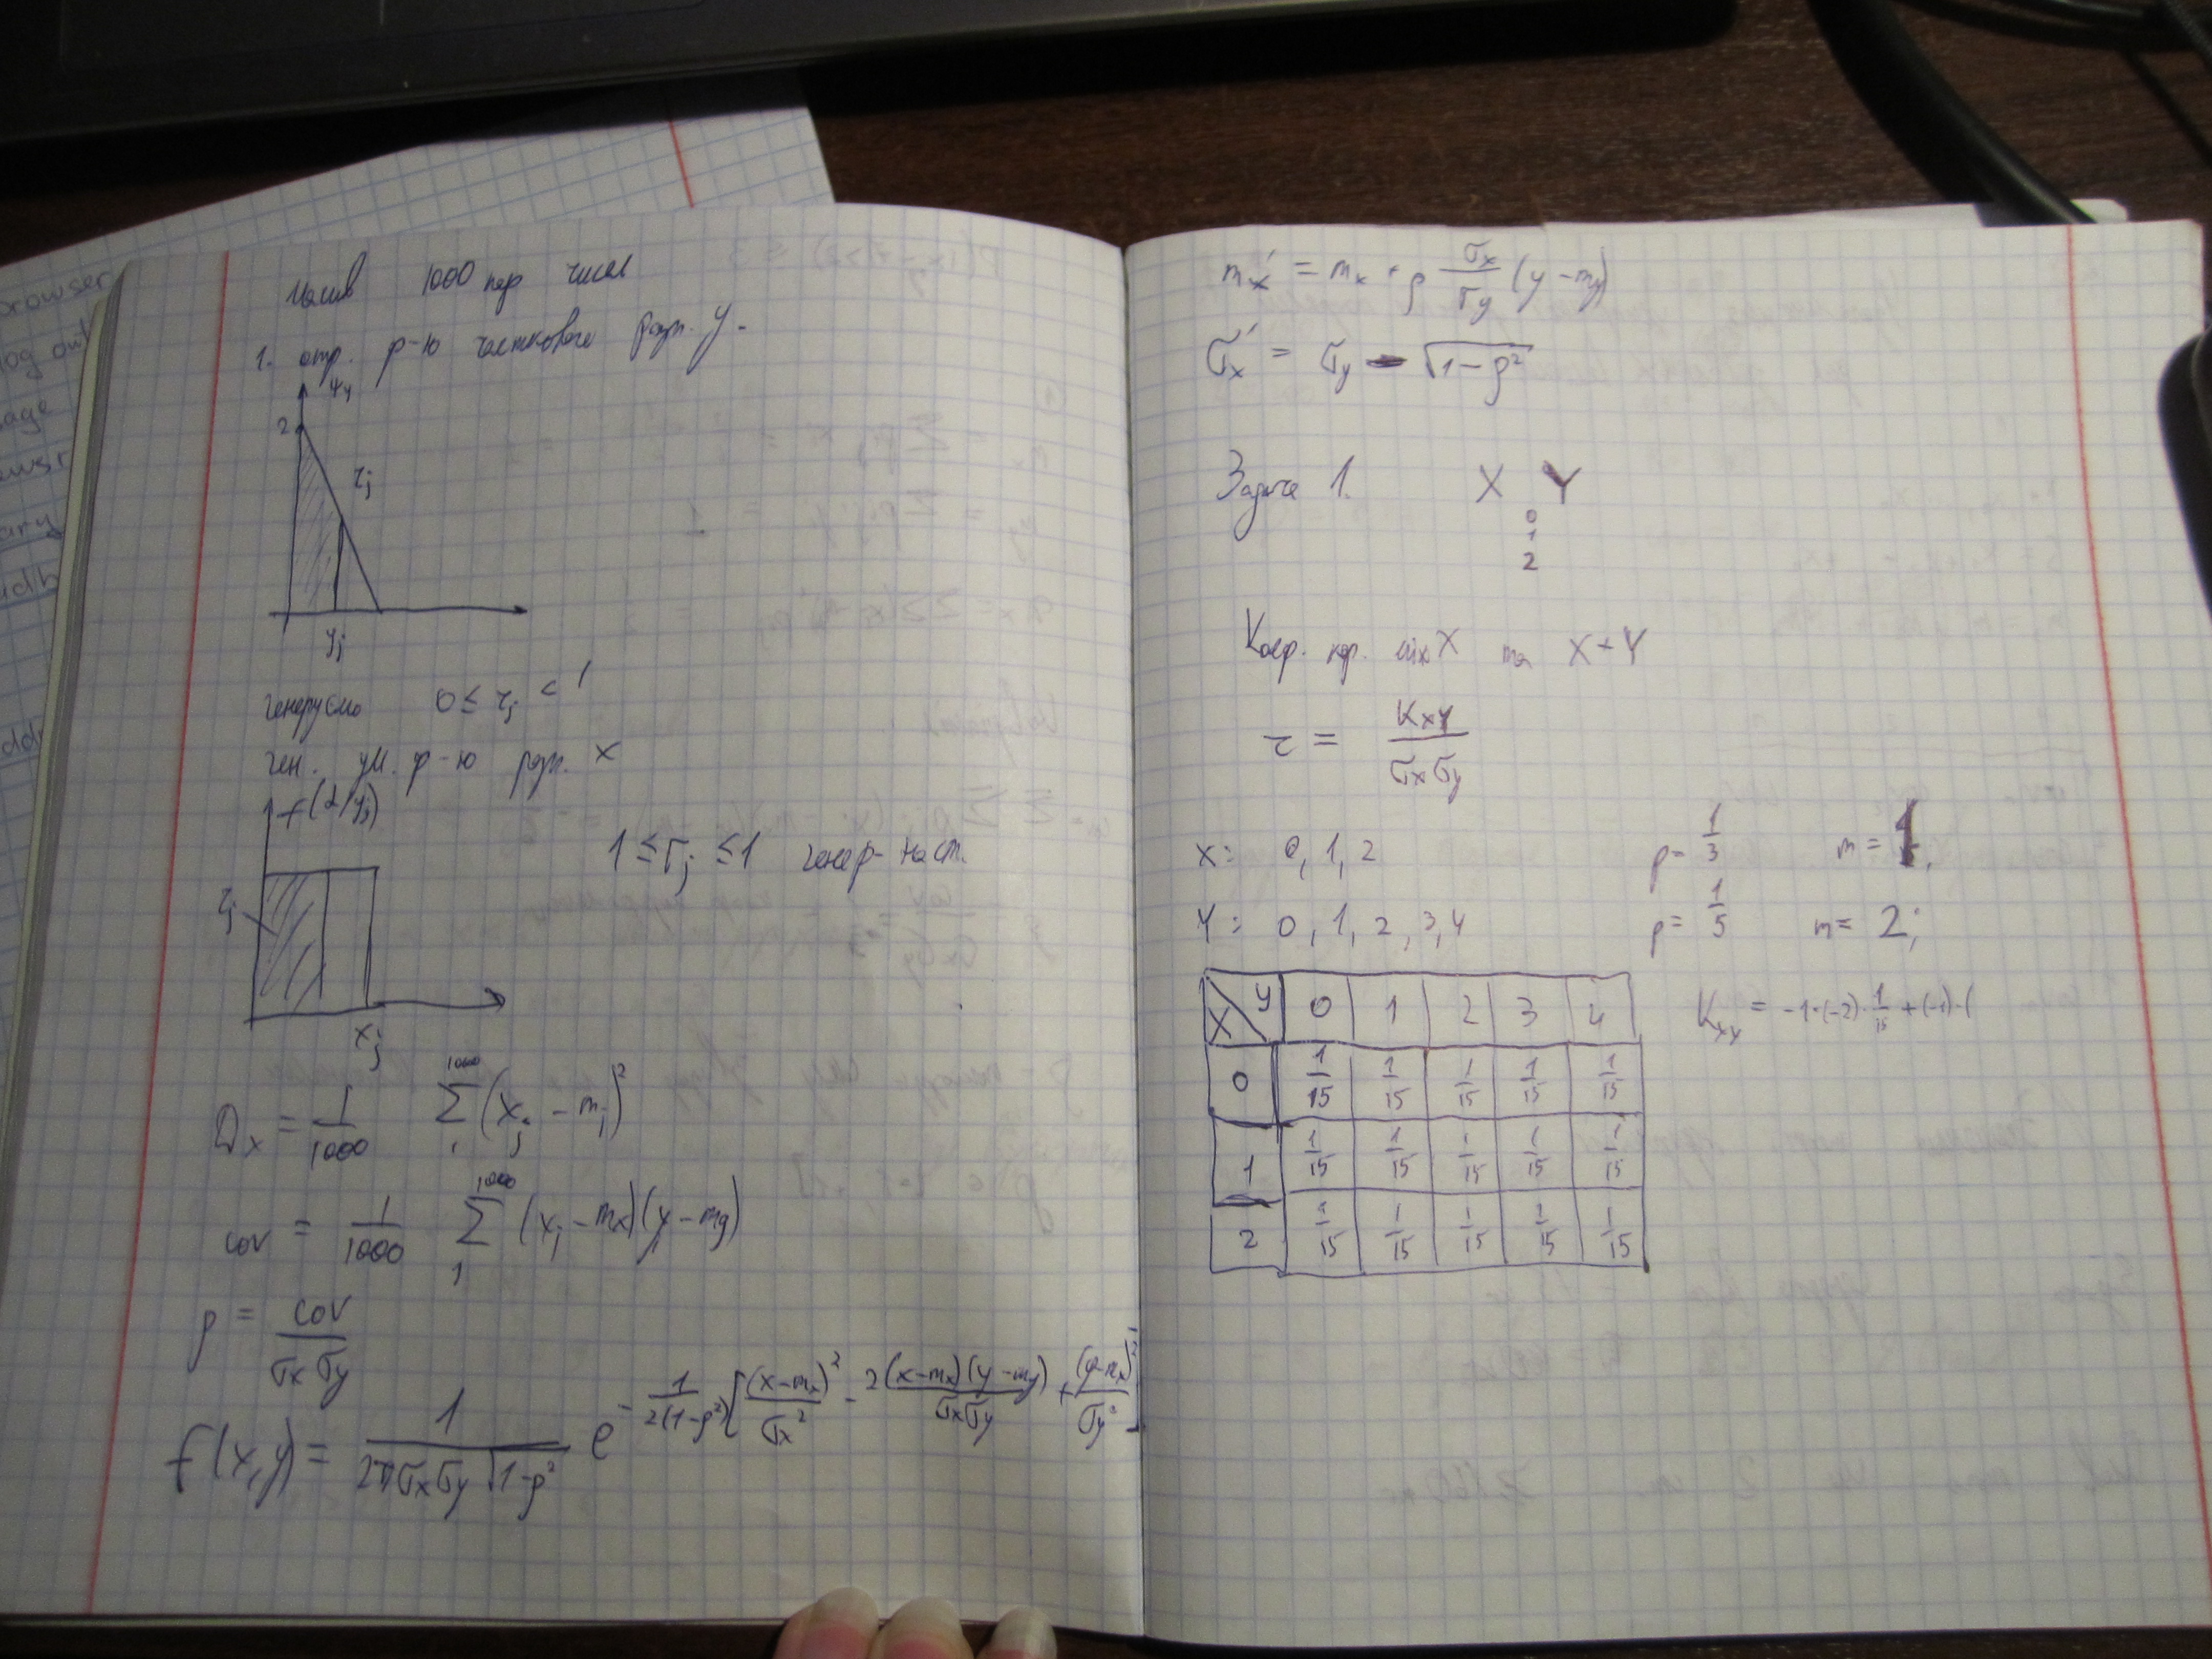 rowser
log out
age
ary
Масив 1000 пар чисел
1. отр. ф-ю часткового розп. y.
φy
2
rj
yj
генеруємо 0 ≤ rj < 1
ген. ум. ф-ю розп. x
f(2/yj)
rj
1 ≤ rj ≤ 1 генер. наст.
xj
Dx = 1/1000 1000 Σ 1 (xj - mj)²
cov = 1/1000 1000 Σ 1 (xj - mx)(y - my)
ρ = cov/σxσy
f(x,y) = 1/2πσxσy√1-ρ² e^-1/2(1-ρ²)[(x-mx)²/σx² - 2(x-mx)(y-my)/σxσy + (y-mx)²/σy²]
mx' = mx + ρ σx/σy (y - my)
σx' = σy √1-ρ²
Задача 1. X Y
0
1
2
Коеф. кор. між X та X+Y
r = Kxy/σxσy
X: 0, 1, 2 p = 1/3 m = 1;
Y: 0, 1, 2, 3, 4 p = 1/5 m = 2;
X Y 0 1 2 3 4 Kxy = -1·(-2)·1/15 + (-1)·(
0 1/15 1/15 1/15 1/15 1/15
1 1/15 1/15 1/15 1/15 1/15
2 1/15 1/15 1/15 1/15 1/15